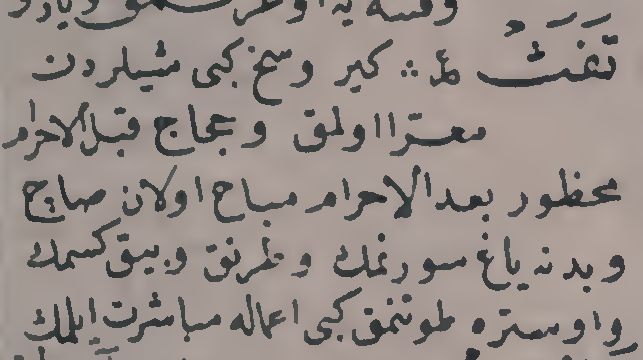 تَفَثْ ط ث كير وسخ كبى شيلردن
معترا اولمق و حجاج قبل الاحرام
محظور بعد الاحرام مباح اولان صاچ
وبدنه ياغ سورنمك و طرنق وبيق كسمك
و اوستره طوتنمق كبى اعماله مباشرت ايلمك